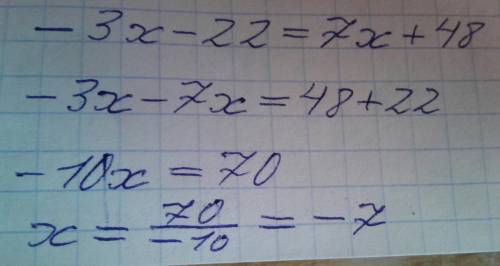 -3x-22=7x+48
-3x-7x=48+22
-10x=70
x=70/-10=-7